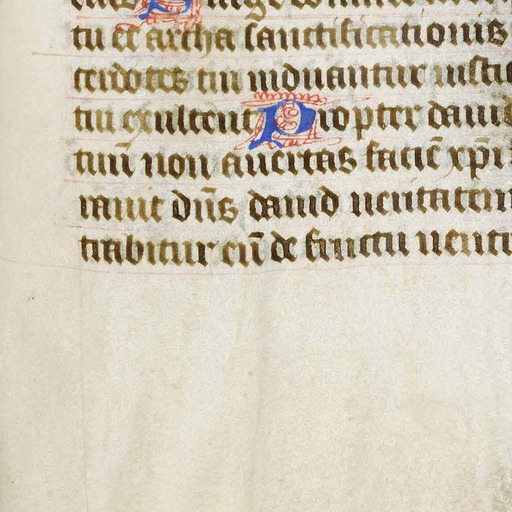 tu et archa sanctificationis
cerdotes tui induantur iustic
tui exultent Propter dauid
tuū non auertas faciē xp̄i
rauit Dn̄s dauid ueritatem
trabitur eū de fructu uentr